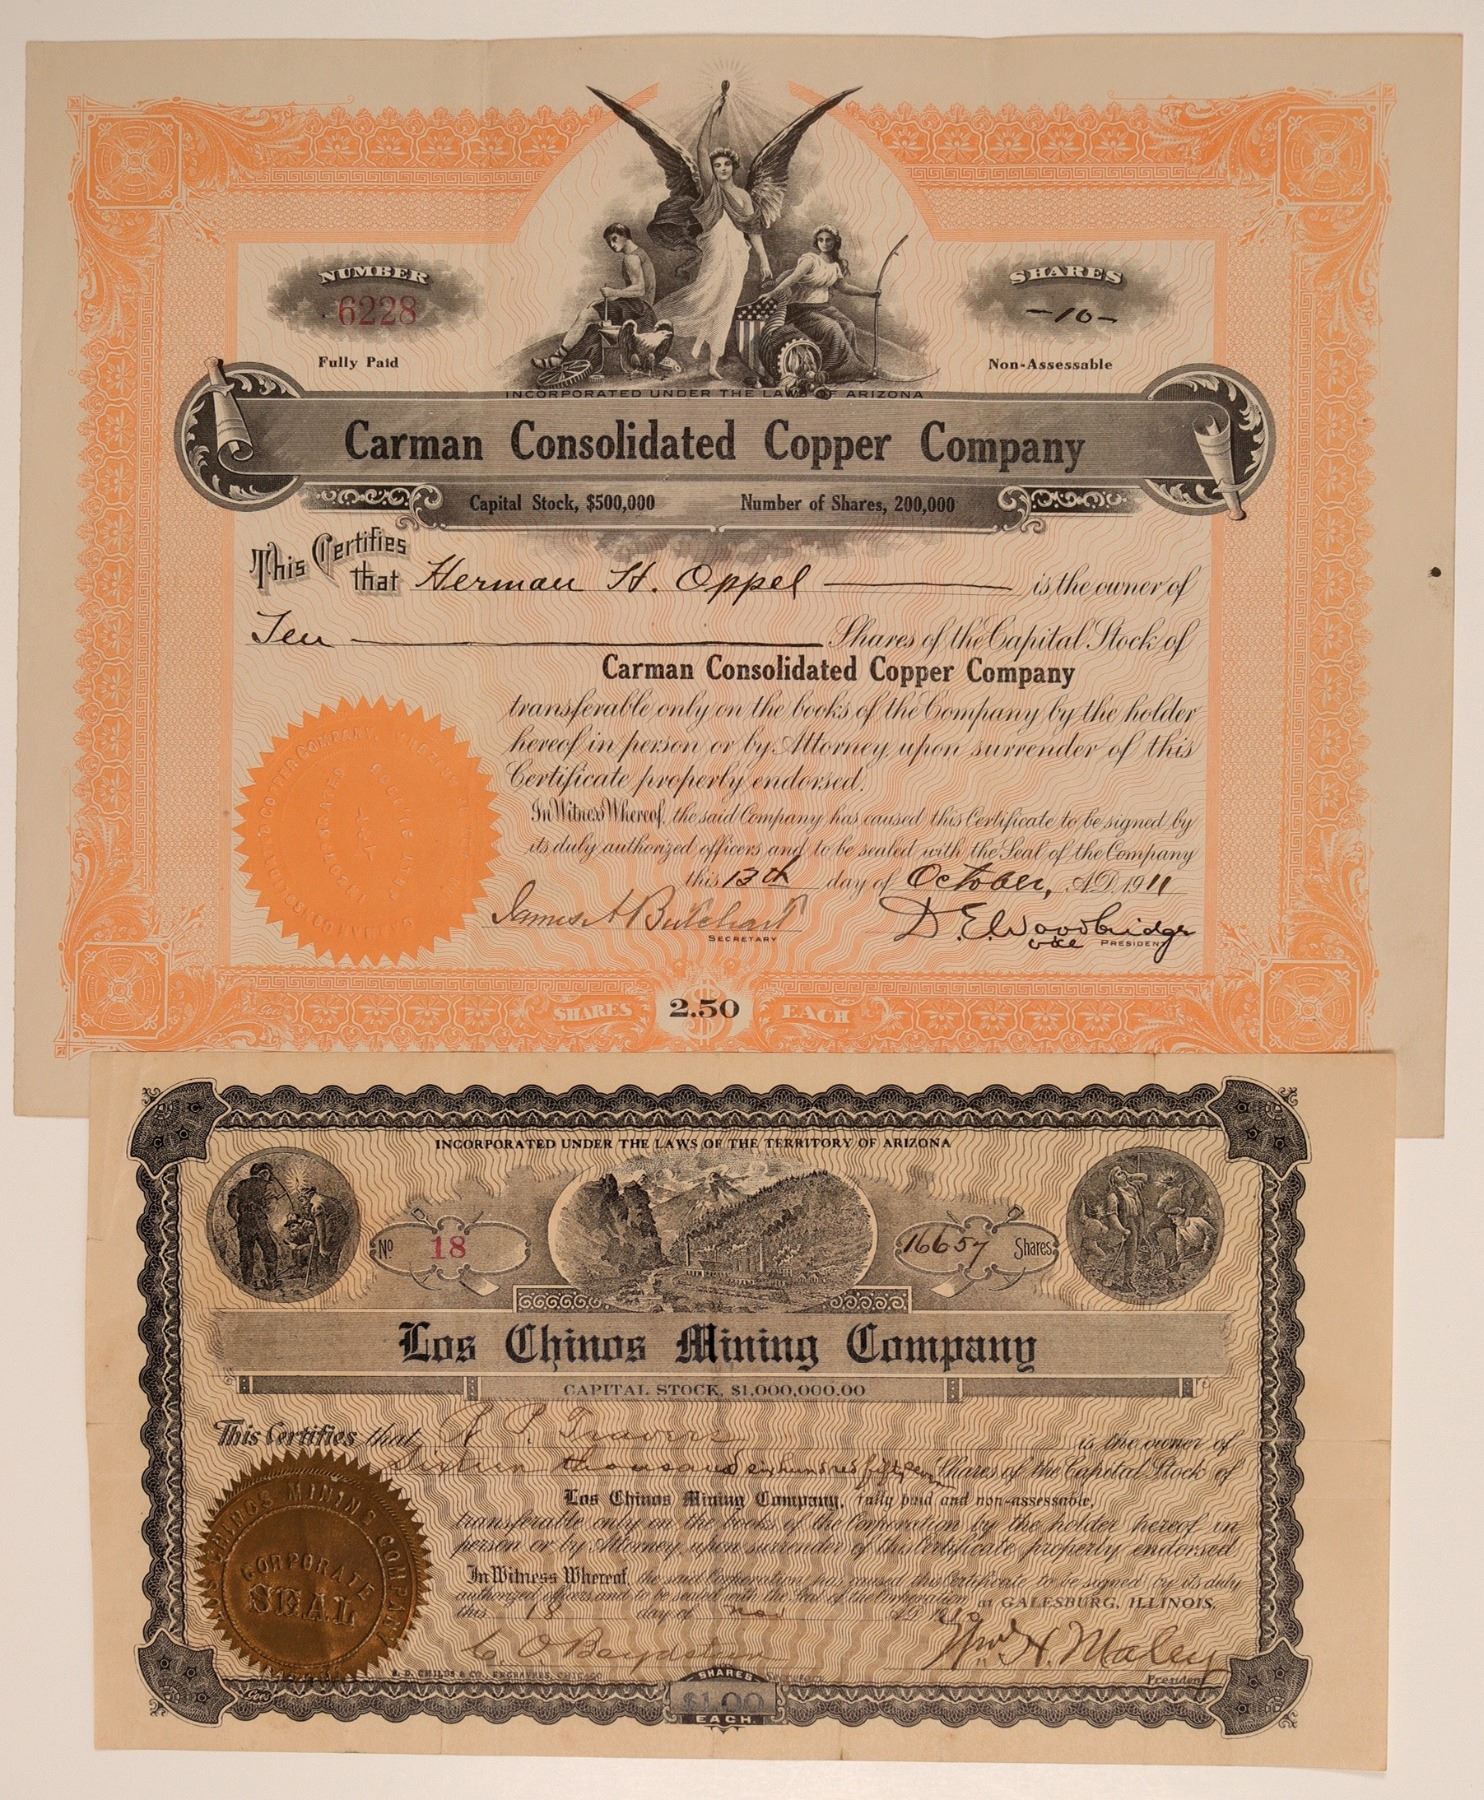 NUMBER
6228
Fully Paid
SHARES
-10-
Non-Assessable
INCORPORATED UNDER THE LAWS OF ARIZONA
Carman Consolidated Copper Company
Capital Stock, $500,000 Number of Shares, 200,000
This Certifies that Herman H. Oppel is the owner of
Ten Shares of the Capital Stock of
Carman Consolidated Copper Company
transferable only on the books of the Company by the holder
hereof in person or by Attorney upon surrender of this
Certificate properly endorsed.
In Witness Whereof, the said Company has caused this Certificate to be signed by
its duly authorized officers and to be sealed with the Seal of the Company
this 13th day of October, A.D. 1911
James A Butchart D. E. Woodbridge
SECRETARY vice PRESIDENT
SHARES $2.50 EACH
INCORPORATED UNDER THE LAWS OF THE TERRITORY OF ARIZONA
No 18
16657 Shares
Los Chinos Mining Company
CAPITAL STOCK, $1,000,000.00
This Certifies that R. P. Travers is the owner of
Sixteen thousand six hundred fifty seven Shares of the Capital Stock of
Los Chinos Mining Company, fully paid and non-assessable,
transferable only on the books of the Corporation by the holder hereof in
person or by Attorney, upon surrender of this Certificate properly endorsed
In Witness Whereof, the said Corporation has caused this Certificate to be signed by its duly
authorized officers and to be sealed with the Seal of the Corporation at GALESBURG, ILLINOIS,
this 18 day of Nov A.D.
C O Boydston Wm H. Maley
Secretary President
LOS CHINOS MINING COMPANY
CORPORATE
SEAL
S. D. CHILDS & CO., ENGRAVERS, CHICAGO
SHARES
$1.00
EACH